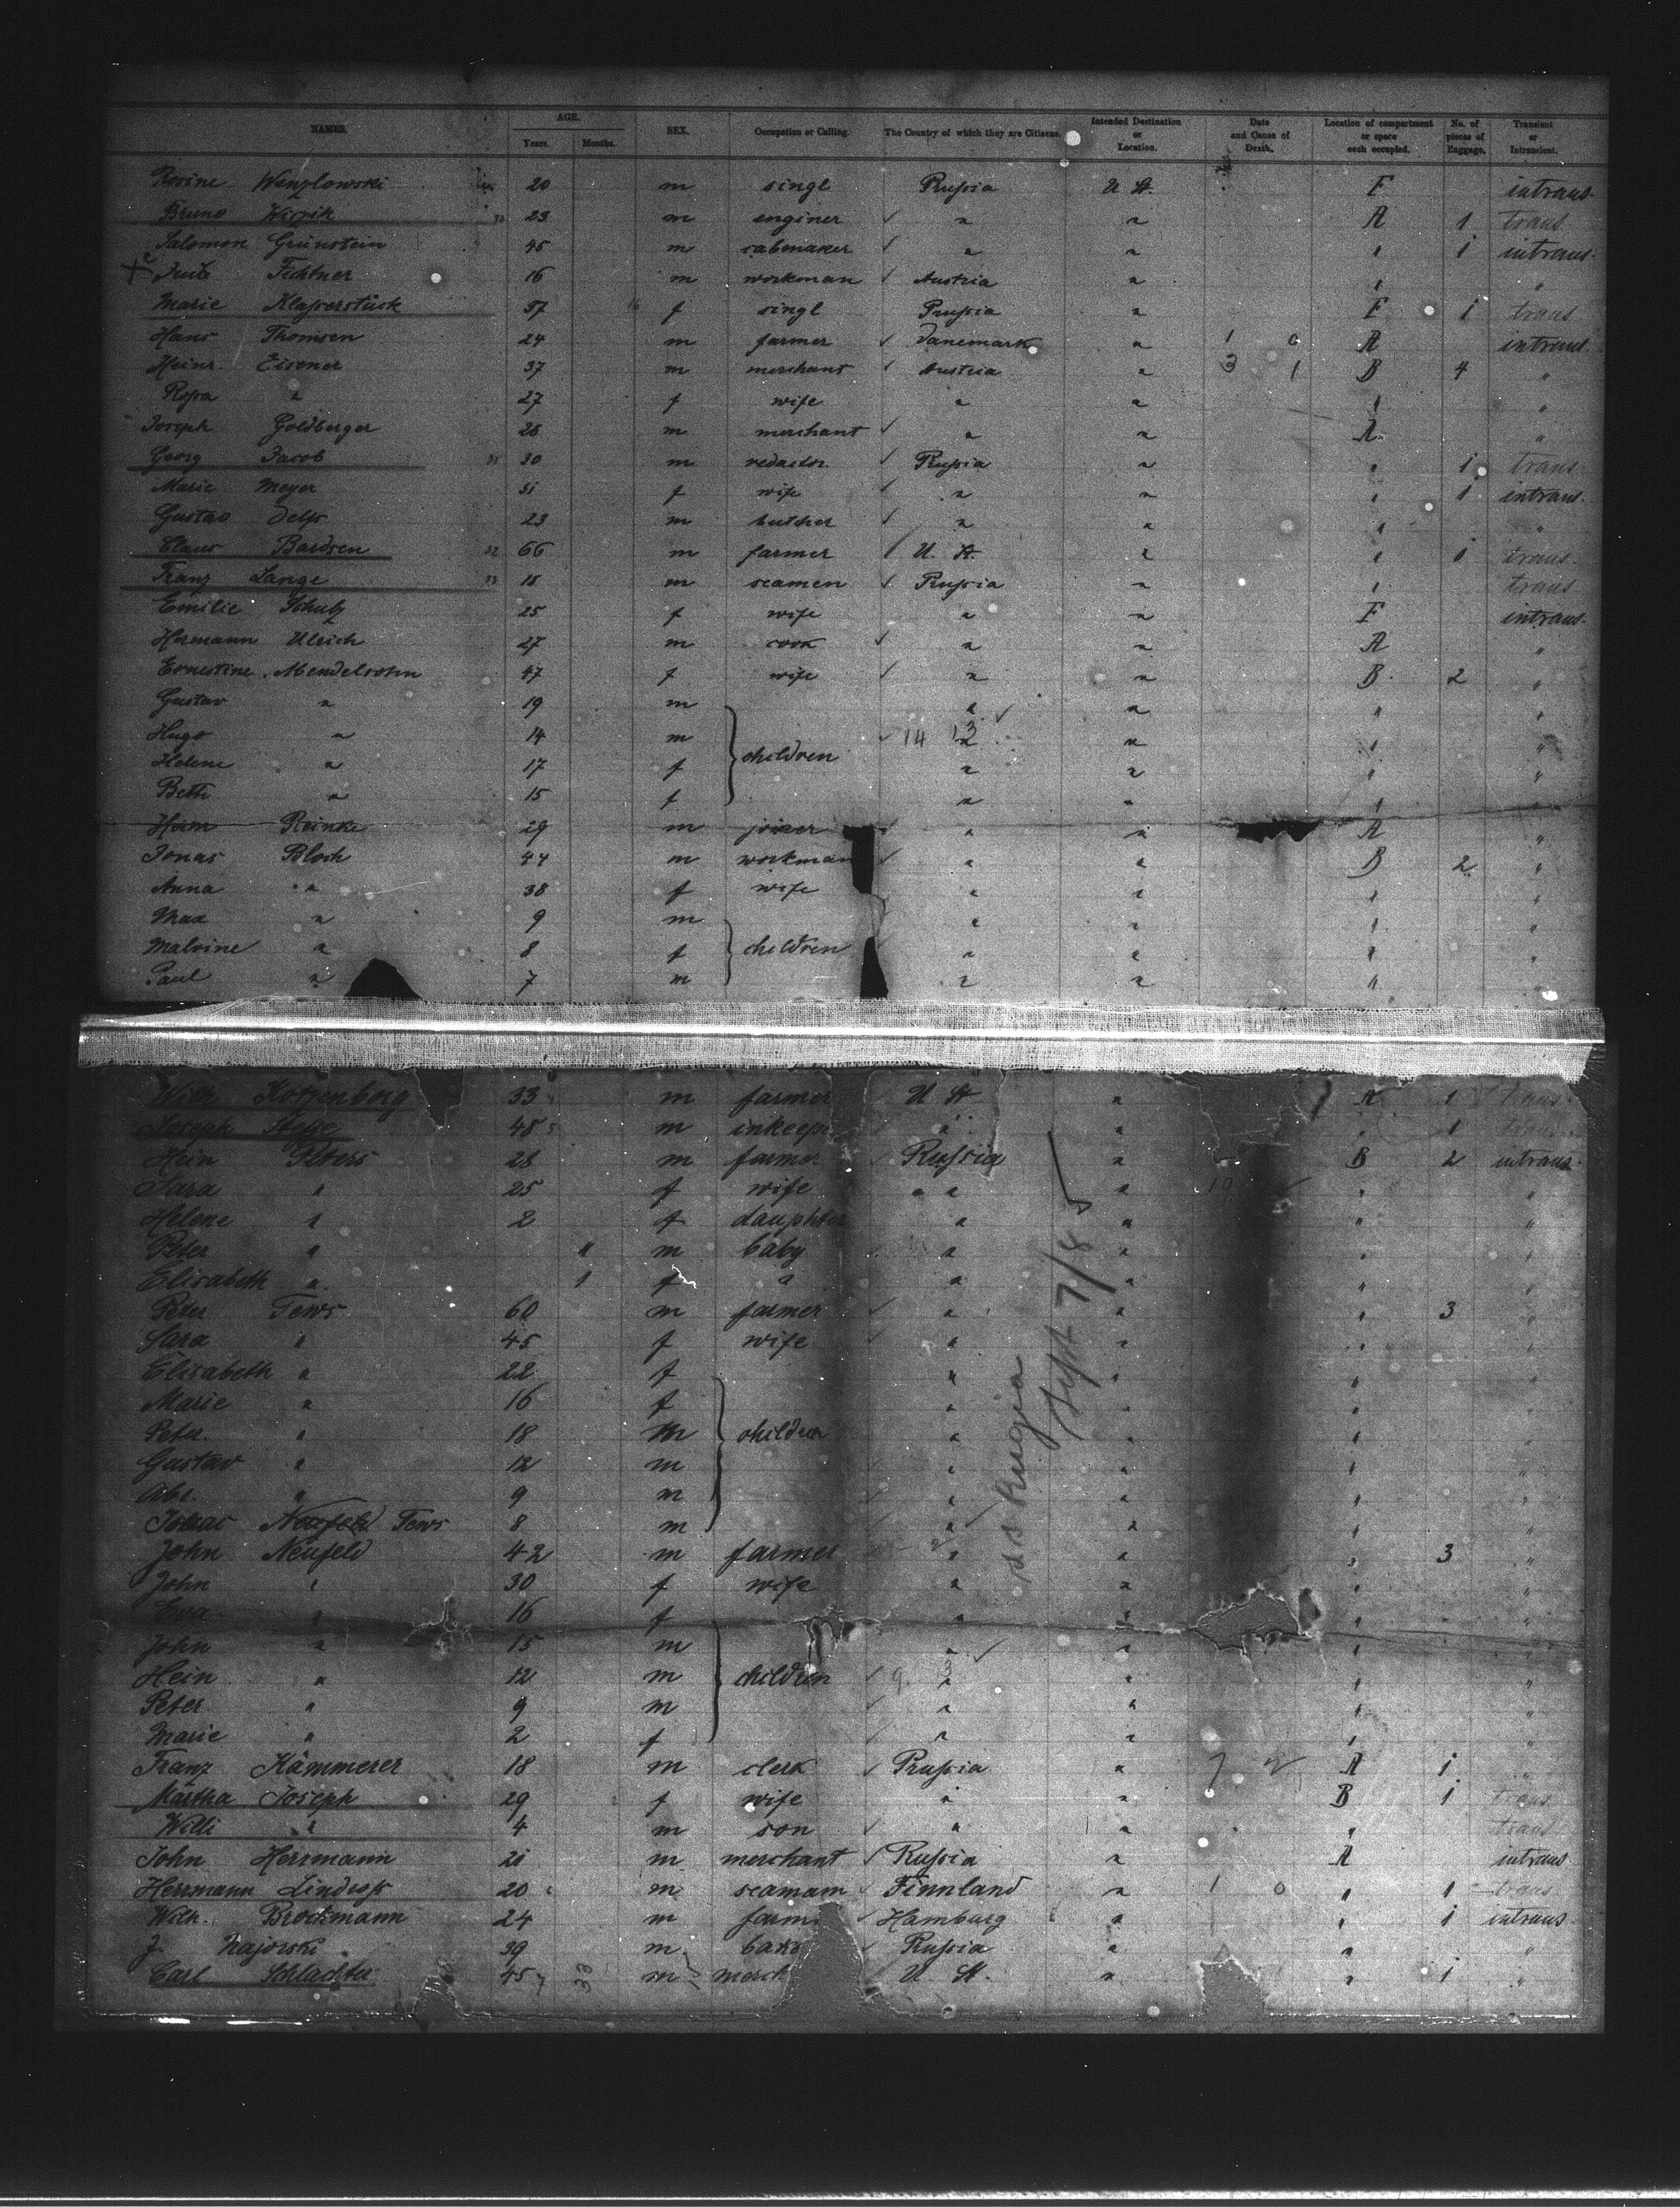 NAMES. AGE. Years. Months. SEX. Occupation or Calling. The Country of which they are Citizens. Intended Destination or Location. Date and Cause of Death. Location of compartment or space each occupied. No. of pieces of Baggage. Transient or Intransient.
Rosine Wenzlowski 20 m singl Prussia U St. F intrans.
Bruno 23 m enginer " " A 1 trans
Salomon Grünstein 45 m cabmaker " " " 1 intrans.
Fichtner 16 m workman Austria " " "
Marie Klaperstück 37 f singl Prussia " F 1 trans
Hans Thomsen 24 m farmer Danemark " 1 0 A intrans.
Heinr. Eisener 37 m merchant Austria " 3 1 B 4 "
Rosa " 27 f wife " " " "
Joseph Goldberger 28 m merchant " " A "
Georg Jacob 30 m redactor Prussia " " 1 trans
Marie Meyer 51 f wife " " " 1 intrans.
Gustav Delfs 23 m butcher " " " "
Claus Bardsen 66 m farmer U. St. " " 1 trans
Franz Lange 18 m seamen Prussia " " trans
Emilie Schulz 25 f wife " " F intrans.
Hermann Ulrich 27 m cook " " A "
Ernestine Mendelsohn 47 f wife " " B 2 "
Gustav " 19 m " " " "
Hugo " 14 m children 14 13 " " " "
Helene " 17 f " " " "
Beth " 15 f " " " "
Heim Reinke 29 m joiner " " A "
Jonas Bloch 44 m workman " " B 2 "
Anna " 38 f wife " " " "
Max " 9 m " " " "
Malvine " 8 f children " " " "
Paul " 7 m " " " "
Wilh Kotzenberg 33 m farmer U St " A 1 trans
Joseph 48 m inkeep " " " 1 trans
Hein Peters 28 m farmer Russia " B 2 intrans.
Sara " 25 f wife " " 19 " "
Helene " 2 f daughter " " " "
Peter " " m baby " " " "
Elisabeth " 1 f " " " " "
Peter Tews 60 m farmer " " " 3 "
Sara " 45 f wife " " " "
Elisabeth " 22 f " " " "
Marie " 16 f " " " "
Peter " 18 m children " " " "
Gustav " 12 m " " " "
Abr. " 9 m " " " "
Isaac Neufeld Tews 8 m " " " "
John Neufeld 42 m farmer " " " 3 "
John " 30 f wife " " " "
Eva " 16 f " " " "
John " 15 m " " " "
Hein " 12 m children 9 3 " " " "
Peter " 9 m " " " "
Marie " 2 f " " " "
Franz Kämmerer 18 m clerk Prussia " 7 A 1 "
Martha Joseph 29 f wife " " B 1 trans
Willi " 4 m son " " " trans
John Herrmann 21 m merchant Russia " A intrans
Herrmann 20 m seamam Finnland " 1 0 " 1 trans
Wilh. Brockmann 24 m farm Hamburg " " 1 intrans
J. Najorski 39 m bake Russia " " "
Carl Schlachter 45 m merch U. St. " " 1 "
ss Rugia
Sept 7/85